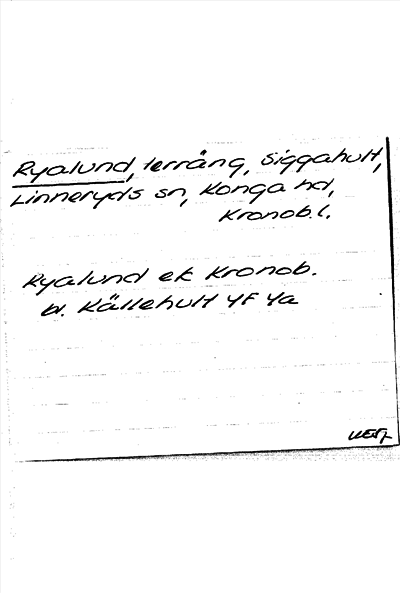 Ryalund, terräng, Siggahult,
Linneryds sn, Konga hd,
Kronob. l.
Ryalund ek Kronob.
bl. Källehult 4F 4a